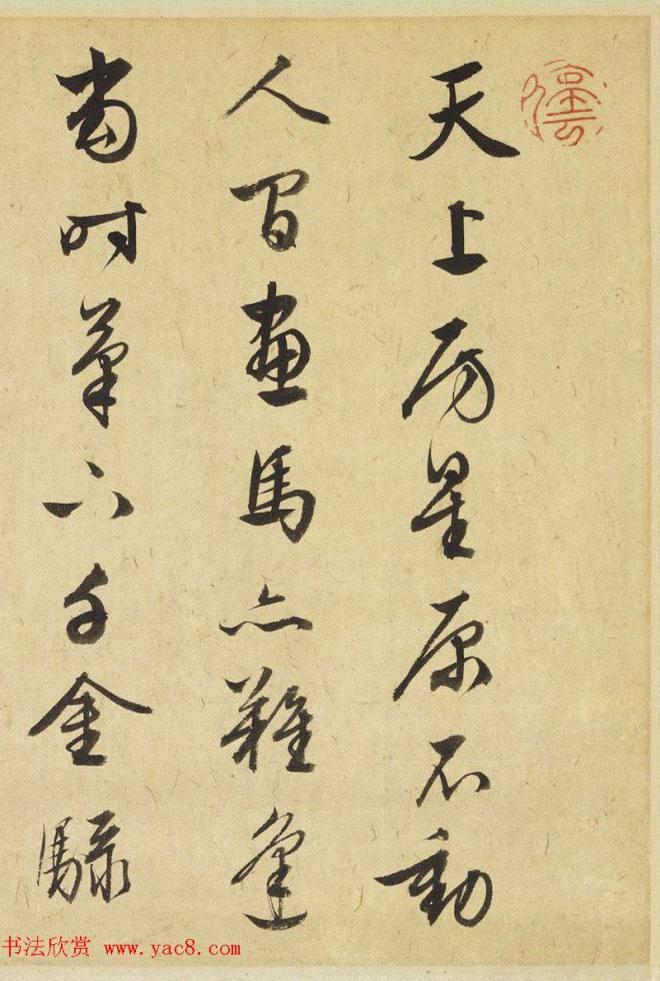 天上房星原不動
人间畫馬亦難逢
當时筆下千金騄
书法欣赏 www.yac8.com